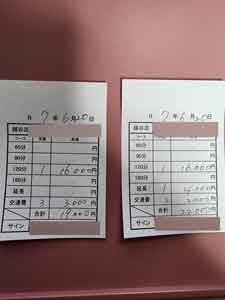 日 7年6月20日
越谷店
コース 本数 料金
60分 円
90分 円
120分 1 16,000円
180分 円
延長 円
交通費 3 3,000円
合計 19,000円
サイン
日 7年6月20日
越谷店
コース 本数 料金
60分 円
90分 円
120分 1 16,000円
180分 円
延長 1 4,000円
交通費 2 2,000円
合計 22,000円
サイン